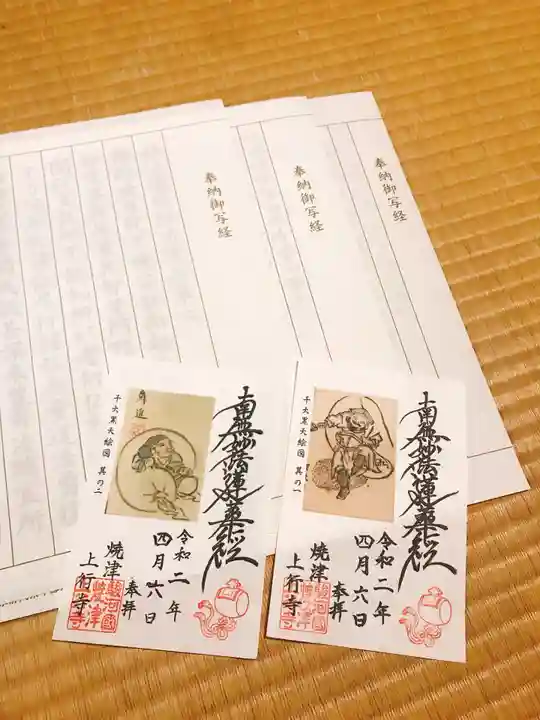 奉納御写経
奉納御写経
奉納御写経
南無妙法蓮華経
千大黒天絵図 其の二
令和二年
四月六日
奉拝
焼津
上行寺
南無妙法蓮華経
千大黒天絵図 其の一
令和二年
四月六日
奉拝
焼津
上行寺